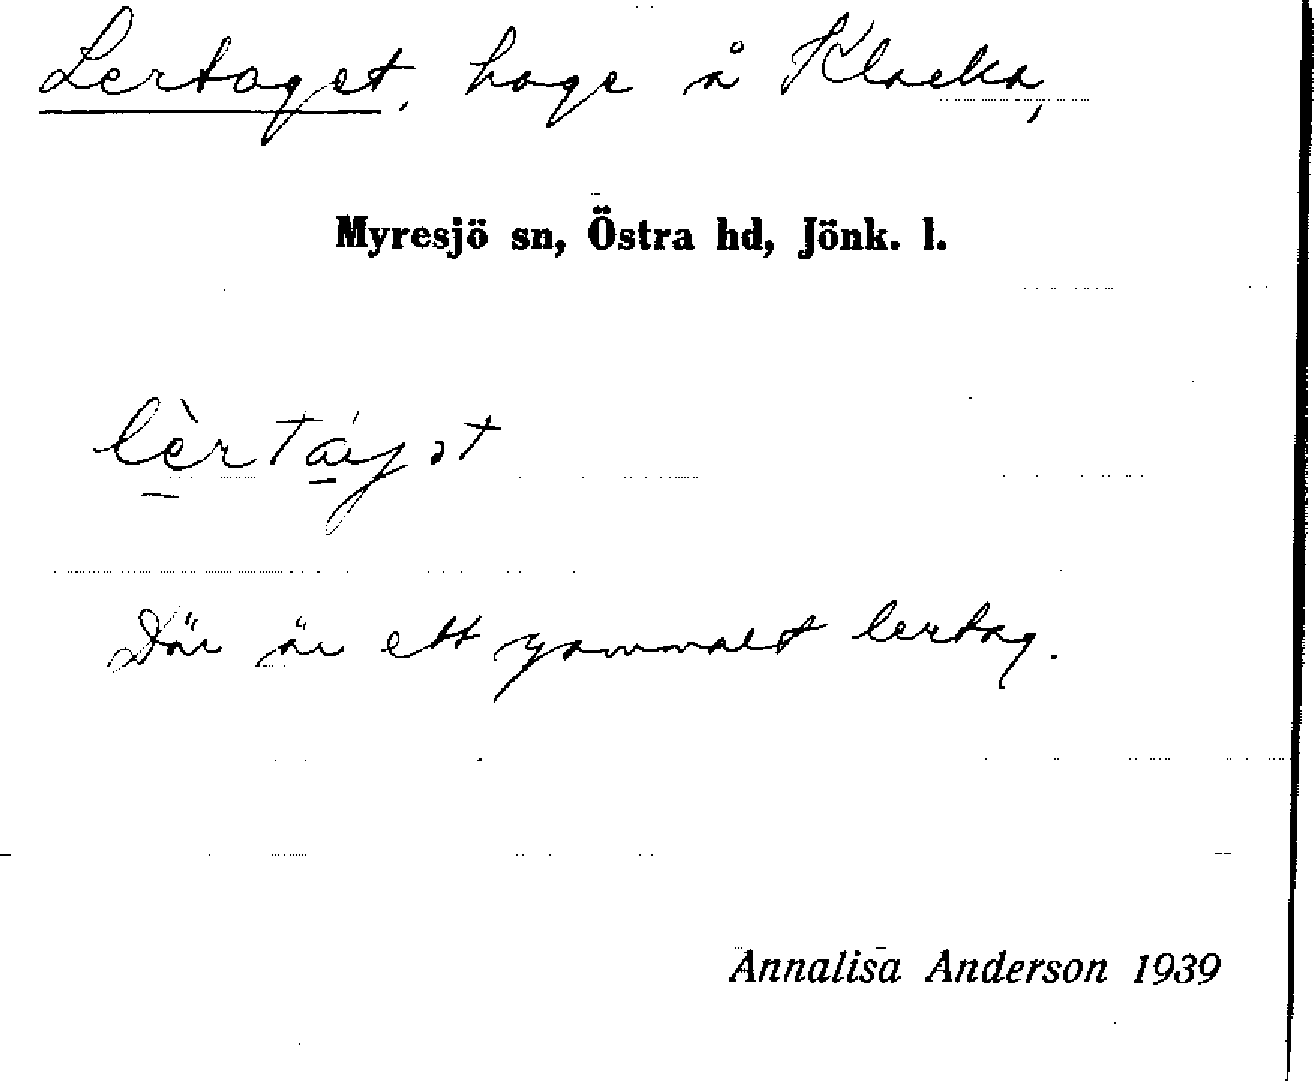 Lertaget, hage å Klacka,
Myresjö sn, Östra hd, Jönk. l.
lèrtágət
Där är ett gammalt lertag.
Annalisa Anderson 1939